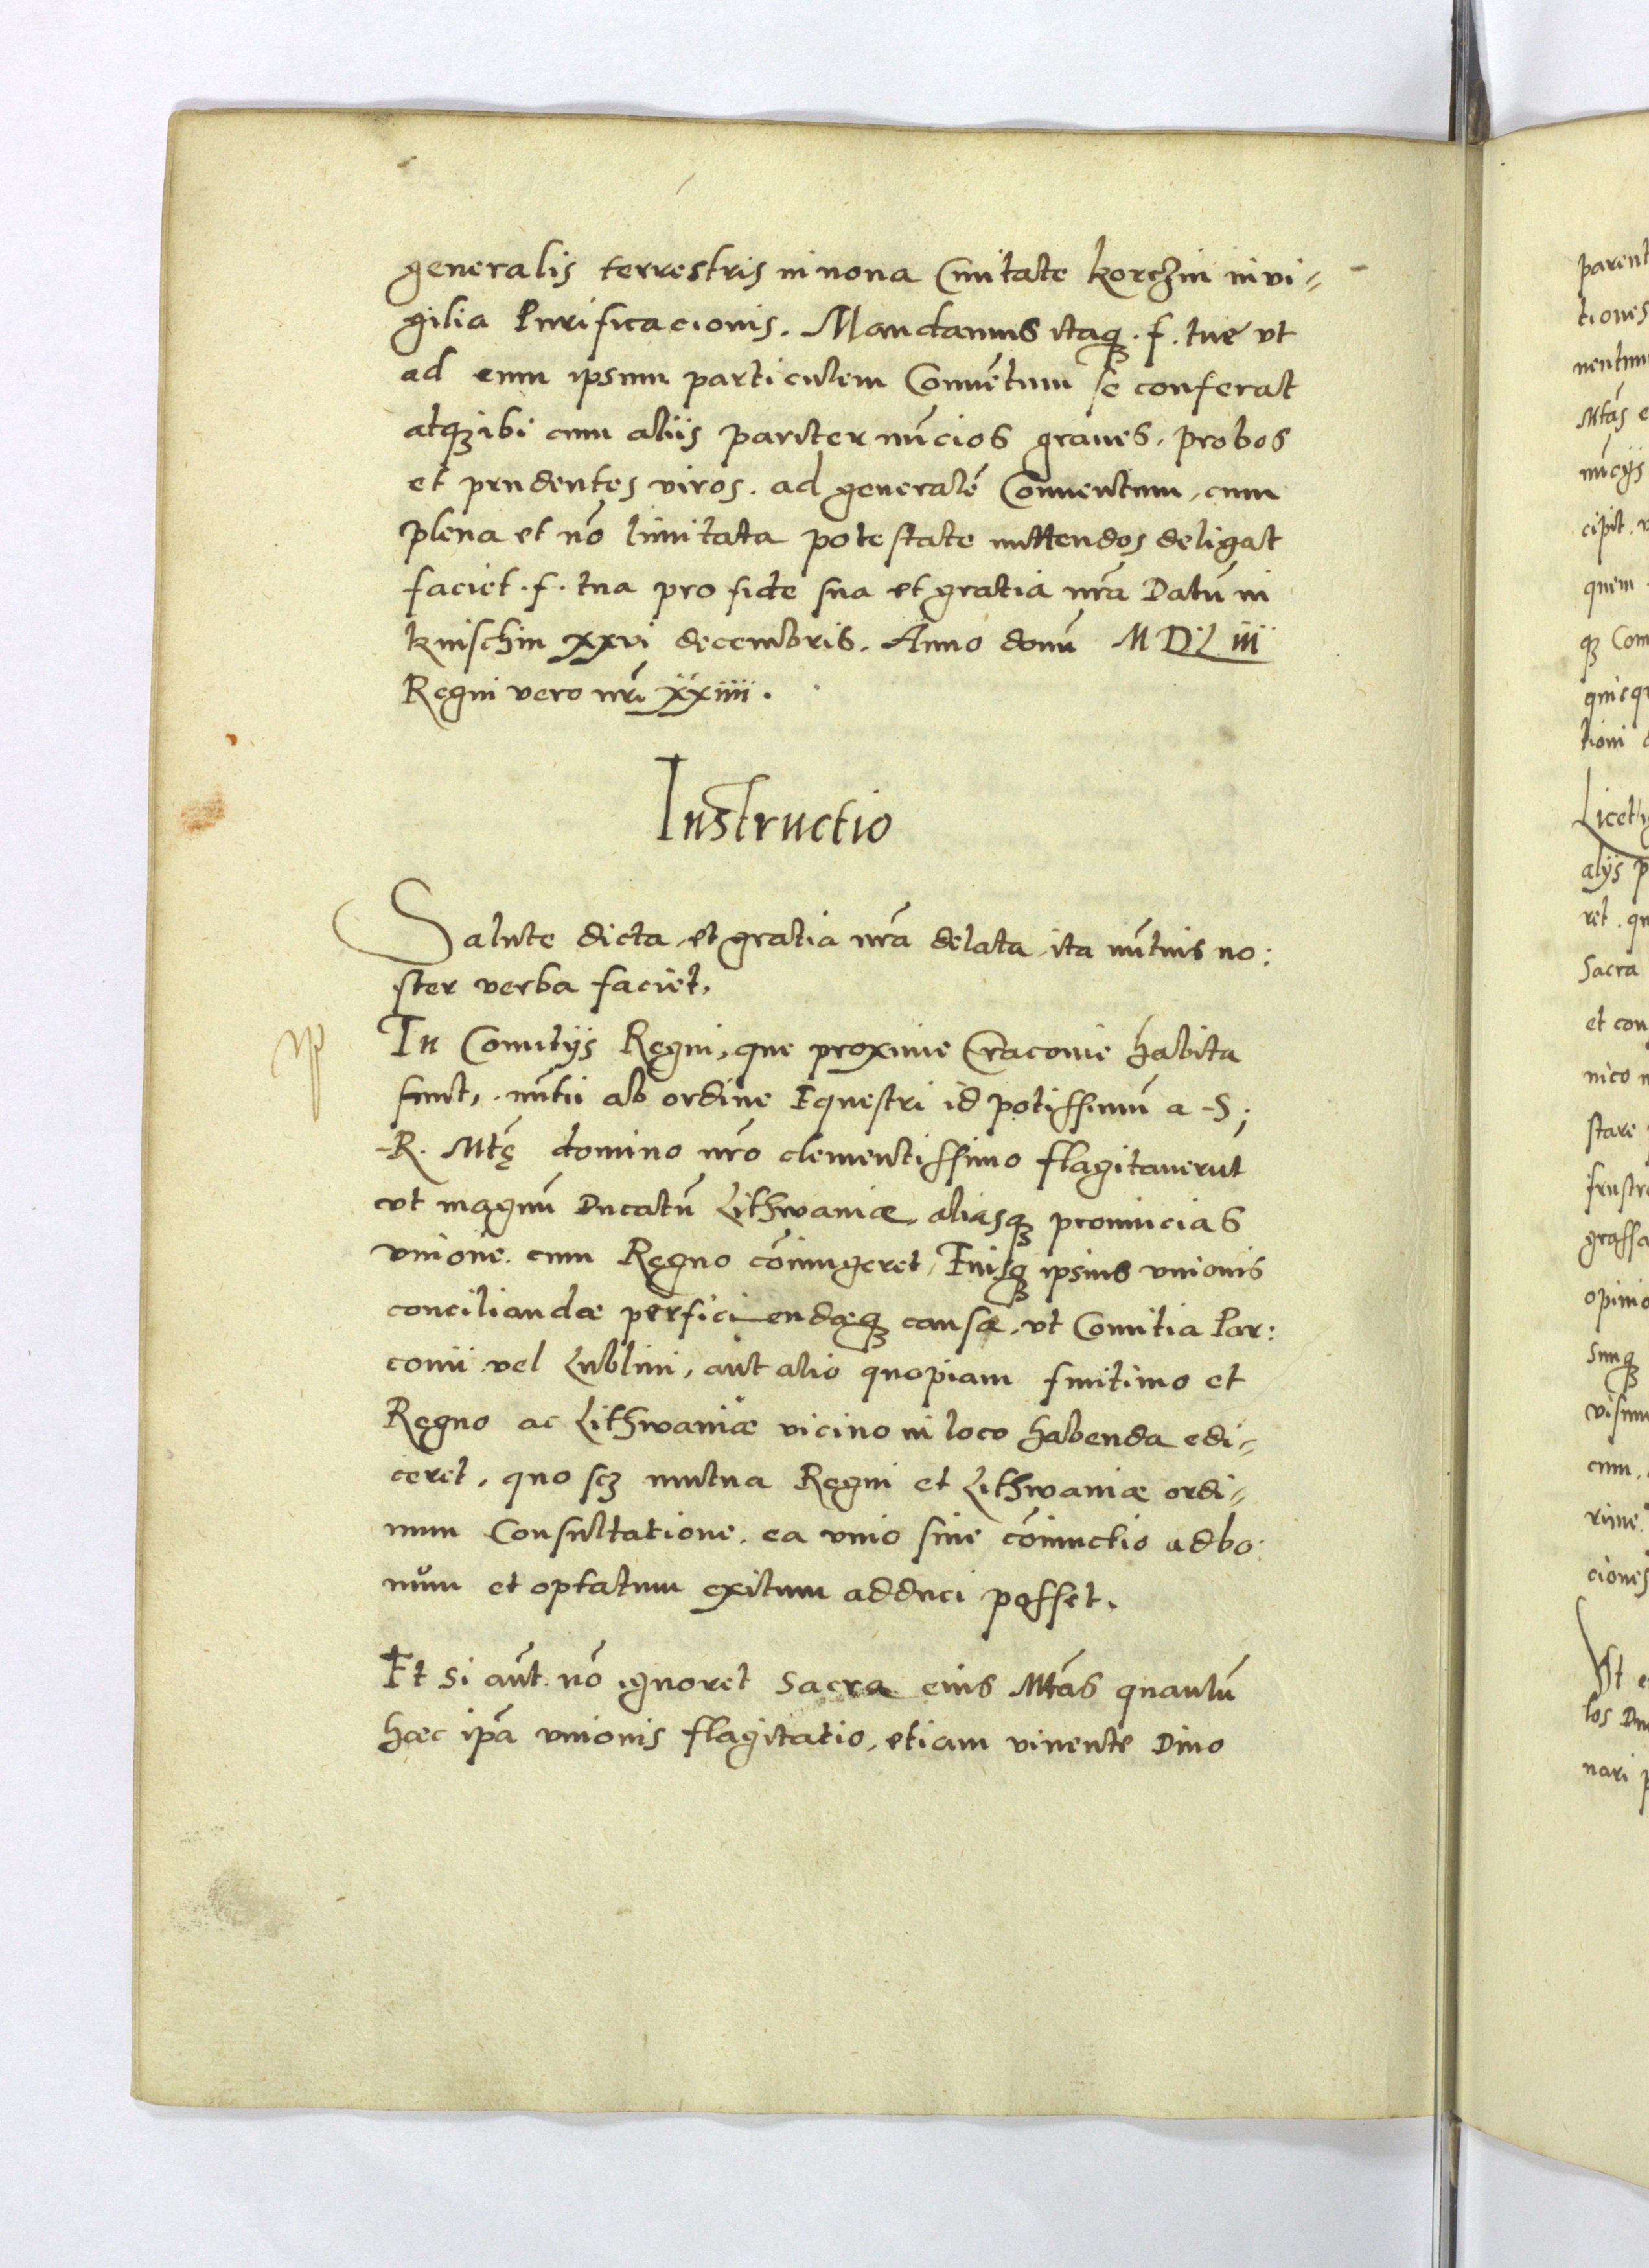 generalis terrestris in nova Civitate korczin in vi-
gilia Purificacionis. Mandamus itaq. f. tue vt
ad eum ipsum particulem Conuētum se conferat
atq ibi cum aliis pariter nūcios graues, probos
et prudentes viros. ad generalē Conuentum, cum
plena et nō limitata potestate mittendos deligat
faciet. f. tua pro fide sua et gratia nrā Datū in
knischin xxvi decembris. Anno domī MDLiii
Regni vero nrī xxiiii.
Instructio
Salute dicta, et gratia nrā delata, ita nūtius no:
ster verba faciet,
In Comitijs Regni, que proxime Cracouie habita
sunt, nūtii ab ordine Equestri id potissimū a S:
R. Mtę domino nrō clementissimo flagitauerūt
vt magnū Ducatū Lithwaniæ, aliasq prouincias
vnione. cum Regno cōiungeret, Eiusq ipsius vnionis
conciliandæ perficiendæq causa, vt Comitia Par:
couii vel Lublini, aut alio quopiam finitimo et
Regno ac Lithwaniæ vicino in loco habenda edi-
ceret, quo scz mutua Regni et Lithwaniæ ordi-
num Consultatione. ea vnio siue cōiunctio ad bo:
num et optatum exitum adduci posset.
Et si aūt. nō ignoret Sacra eius Mtās quantū
hæc ipā vnionis flagitatio, etiam viuente Diuo
parent
tiones
Mtās e
nūcijs
cipit.
quem
q Com
quicq
tioni
Licet
alijs p
ret. qu
Sacra
et con
nico
stare
frustra
grassa
opinio
Simq
visum
cum,
rime
ciones
Vt e
los Du
nari p